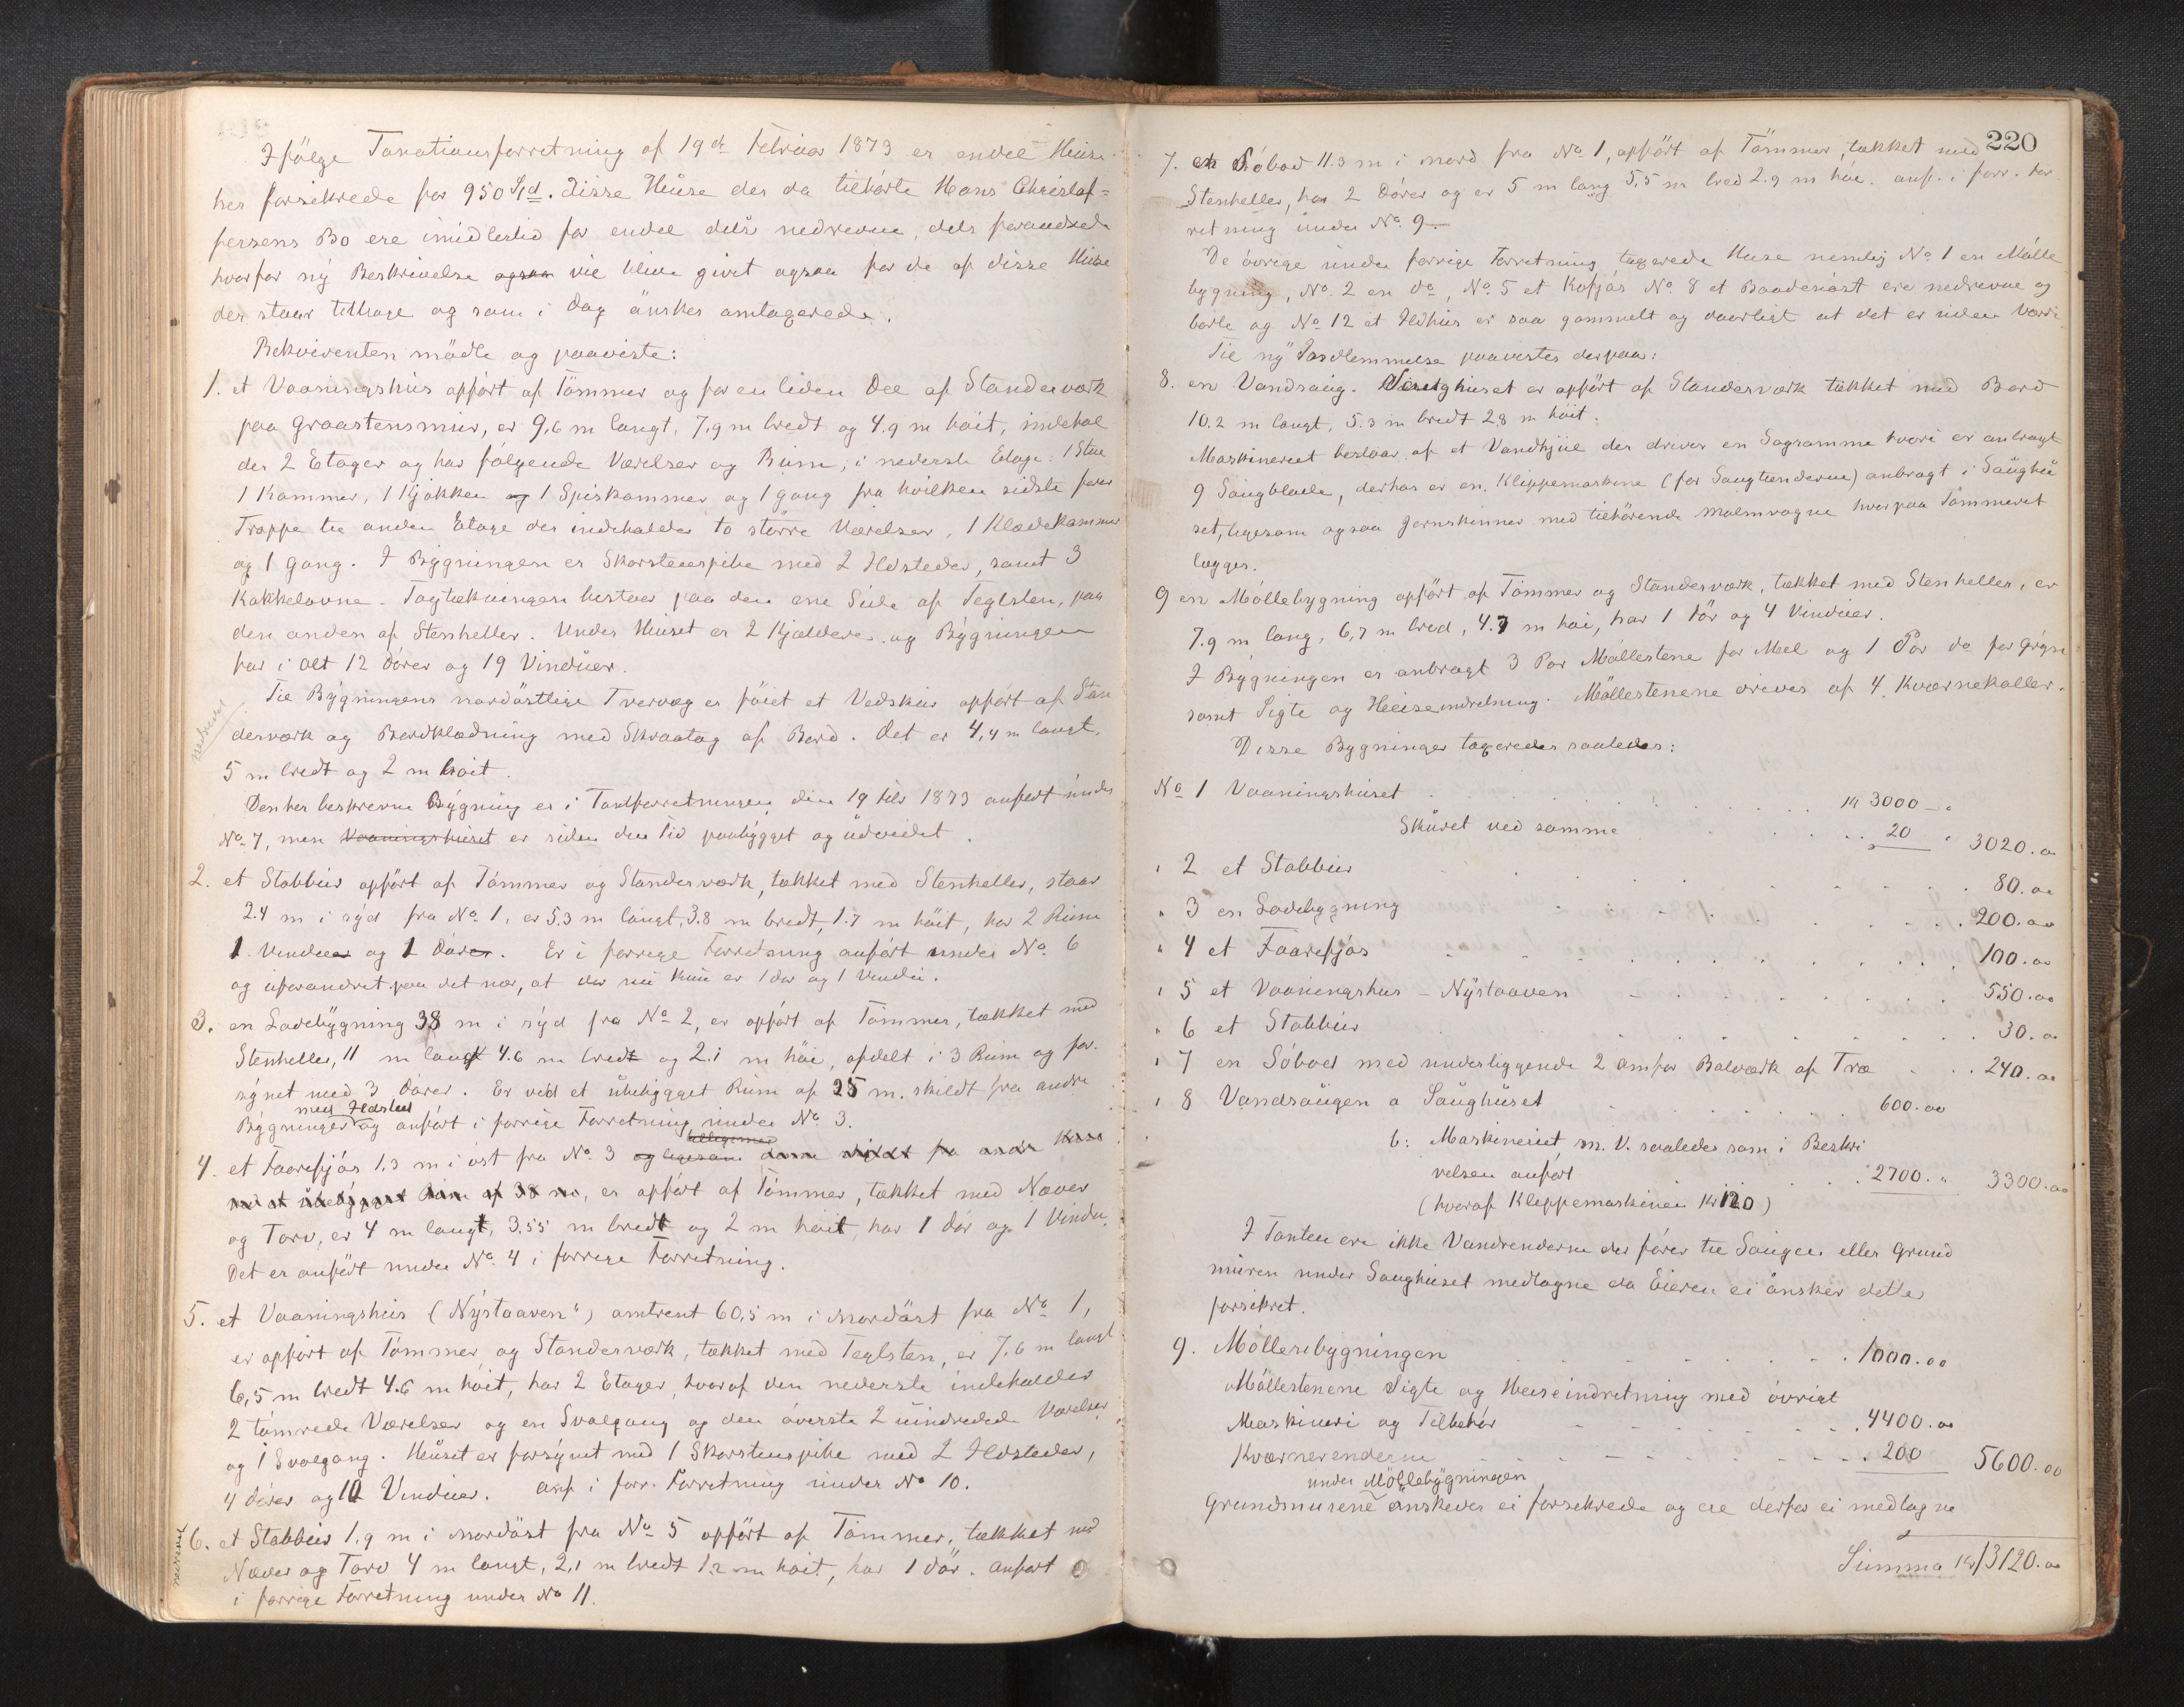 Ifölge Taxationsforretning af 19de Februar 1873 er endel Huse
her forsikrede for 950 Spd. Disse Huse der da tilhörte Hans Christof-
fersens Bo ere imidlertid for endel dels nedrevne, dels forandrede
hvorfor ny Beskrivelse ogsaa vil blive givet ogsaa for de af disse Huse
der staar tilbage og som i Dag önskes omtaxerede.
Rekvirenten mödte og paaviste:
1. et Vaaningshus opfört af Tömmer og for en liden Del af Standerværk
paa Graastensmur, er 9,6 m langt, 7,9 m bredt og 4,9 m höit, indehol
der 2 Etager og har fölgende Værelser og Rum; i nederste Etage: 1 Stue
1 Kammer, 1 Kjökken og 1 Spiskammer og 1 Gang fra hvilken sidste förer
Trappe til anden Etage der indeholder to större Værelser, 1 Klædekammer
og 1 Gang. I Bygningen er Skorstenspibe med 2 Ildsteder, samt 3
Kakkelovne. Tagtækningen bestaar paa den ene Side af Teglsten, paa
den anden af Stenheller. Under Huset er 2 Kjældere og Bygningen
har i alt 12 Dörer og 19 Vinduer.
Til Bygningens nordöstlige Tvervæg er föiet et Vedskur opfört af Stan
derværk og Bordklædning med Skraatag af Bord. Det er 4,4 m langt,
5 m bredt og 2 m höit.
nedrevet
Den her beskrevne Bygning er i Taxtforretningen den 19 Febr 1873 anfört under
No 7, men Vaaningshuset er siden den Tid paabygget og udvidet.
2. et Stabbur opfört af Tömmer og Standerværk, tækket med Stenheller, staar
2.4 m i syd fra No 1, er 5.3 m langt, 3.8 m bredt, 1.7 m höit, har 2 Rum
1 Vinduer og 1 Dörer. Er i forrige Forretning anfört under No 6
og uforandret paa det nær, at der nu kun er 1 Dör og 1 Vindu.
3. en Ladebygning 38 m i syd fra No 2, er opfört af Tömmer, tækket med
Stenheller, 11 m langt 4.6 m bredt og 2.1 m höi, afdelt i 3 Rum og for-
synet med 3 Dörer. Er ved et ubebygget Rum af 25 m. skildt fra andre
med Ildsted
Bygninger og anfört i forrige Forretning under No 3.
4. et Faarefjös 1.3 m i öst fra No 3 og ligesom denne skildt fra andre Huse
ved et ubebygget Rum af 38 m, er opfört af Tömmer, tækket med Næver
og Torv, er 4 m langt, 3,55 m bredt og 2 m höit, har 1 Dör og 1 Vindu.
Det er anfört under No 4 i forrige Forretning.
5. et Vaaningshus („Nystaaven“) omtrent 60,5 m i Nordöst fra No 1,
er opfört af Tömmer og Standerværk, tækket med Teglsten, er 7,6 m langt
6,5 m bredt 4.6 m höit, har 2 Etager, hvoraf den nederste indeholder
2 tömrede Værelser og en Svalgang og den överste 2 uindredede Værelser
og 1 Svalgang. Huset er forsynet med 1 Skorstenspibe med 2 Ildsteder,
4 Dörer og 10 Vinduer. Anf i forr. Forretning under No 10.
6. et Stabbur 1.9 m i Nordöst fra No 5 opfört af Tömmer, tækket med
Næver og Torv 4 m langt, 2,1 m bredt 1.2 m höit, har 1 Dör. Anfört
i forrige Forretning under No 11.
nedrevet
220
7. en Söbod 11.3 m i Nord fra No 1, opfört af Tömmer, tækket med
Stenheller, har 2 Dörer og er 5 m lang 5,5 m bred 2.9 m höi. Anf. i forr. For
retning under No 9.
De övrige under forrige Forretning taxerede Huse nemlig No 1 en Mölle
bygning, No. 2 en do, No. 5 et Kofjös No. 8 et Baadenöst ere nedrevne og
borte og No 12 et Ildhus er saa gammelt og daarligt at det er uden Værdi.
Til ny Indlemmelse paavistes derpaa:
8. en Vandsaug. Saughuset er opfört af Standerværk tækket med Bord
10.2 m langt, 5.3 m bredt 2,8 m höit.
Maskineriet bestaar af et Vandhjul der driver en Sagramme hvori er anbragt
9 Saugblade, derhos er en Klippemaskine (for Saugtænderne) anbragt i Saughu
set, ligesom ogsaa Jernskinner med tilhörende Malmvogne hvorpaa Tömmeret
lægges.
9 en Möllebygning opfört af Tömmer og Standerværk, tækket med Stenheller, er
7.9 m lang, 6,7 m bred, 4.7 m höi, har 1 Dör og 4 Vinduer.
I Bygningen er anbragt 3 Par Möllestene for Mel og 1 Par do for Gryn
samt Sigte og Heiseindretning. Möllestenene drives af 4 Kværnekaller.
Disse Bygninger taxeredes saaledes:
No 1 Vaaningshuset Kr 3000 - "
Skuret ved samme 20 " 3020.00
" 2 et Stabbur 80.00
" 3 en Ladebygning 200.00
" 4 et Faarefjös 100.00
" 5 et Vaaningshus - Nystaaven 550.00
" 6 et Stabbur 30.00
" 7 en Söbod med underliggende 2 Omfar Bolværk af Træ 240.00
" 8 Vandsaugen a Saughuset 600.00
b: Maskineriet m. V. saaledes som i Beskri
velsen anfört 2700. " 3300.00
(hvoraf Klippemaskinen Kr 120)
I Taxten ere ikke Vandrenderne der förer til Saugen eller Grund
muren under Saughuset medtagne da Eieren ei önsker dette
forsikret.
9. Möllebygningen 1000.00
Möllestenene Sigte og Heiseindretning med övrigt
Maskineri og Tilbehör 4400.00
Kværnerenderne 200 5600.00
under Möllebygningen
Grundmurene önskedes ei forsikrede og ere derfor ei medtagne
Summa Kr 13120.00